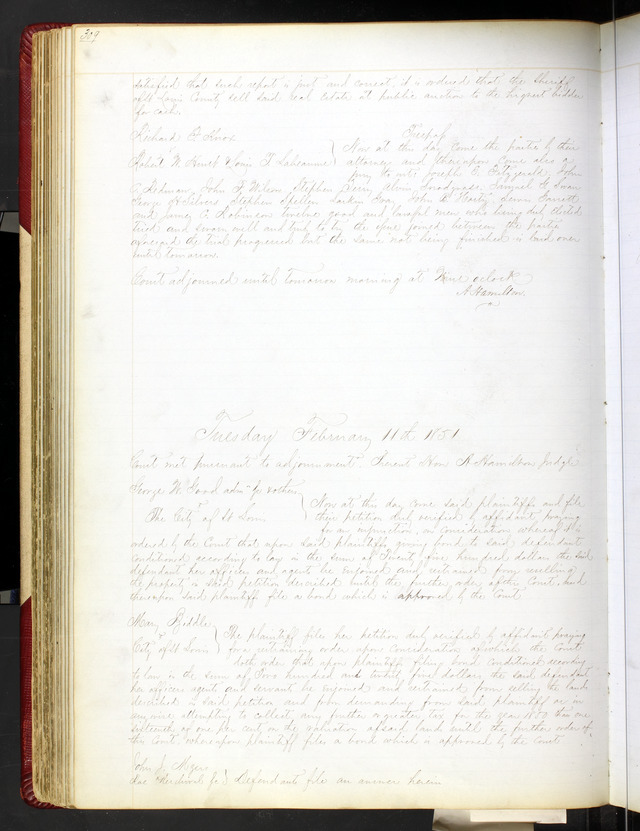 309
satisfied that such report is just and correct, it is ordered that the Sheriff
of St Louis County sell said real Estate at public auction to the highest bidder
for cash
Richard
Trespass
Now at this day come the parties by their
Robert W
attorneys and thereupon come also a
jury to wit Joseph C Fitzgerald John
John F Wilson Stephen Samuel G Swan
George Stephen John B Lewis Garrett
and James C Robinson twelve good and lawful men who being duly elected
tried and sworn well and truly to try the issue joined between the parties
overcame the trial progressed but the same not being finished is laid over
until tomorrow
Court adjourned until tomorrow morning at Nine oclock
A Hamilton
Tuesday February 11th 1851
Court met pursuant to adjournment Present Hon A Hamilton Judge
George W admr & others
Now at this day come said plaintiffs and file
The City of St Louis
their petition duly verified by affidavit praying
for an injunction, on consideration whereof it is
ordered by the Court that upon said plaintiffs giving bond to said defendant
conditioned according to law in the sum of hundred dollars the said
defendant her officers and agents be enjoined and restrained from selling
the property in said petition described until the further order of the Court and
thereupon said plaintiffs file a bond which is approved by the Court
Mary Biddle
City of St Louis
The plaintiff files her petition duly verified by affidavit praying
for a restraining order upon consideration of which the Court
doth order that upon plaintiff filing bond conditioned according
to law in the sum of hundred and four dollars the said defendant
her officers agents and servants be enjoined and restrained from selling the land
described in said petition and from demanding from said plaintiff or in
any wise attempting to collect any further or greater tax for the year
of one per cent on the valuation of said land until the further order of
this Court whereupon plaintiff files a bond which is approved by the Court
John J
Defendants file an answer herein